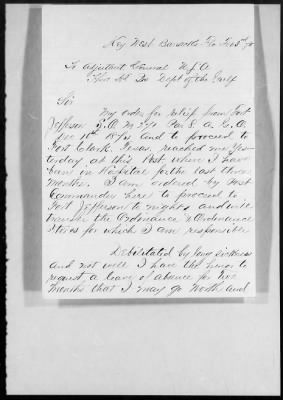 Key West Barracks Fla Feb 5th
To Adjutant General U.S.A.
Thro Hd Qrs Dept of the Gulf
Sir
My order for relief from Fort
Jefferson S.O. No 271 Par 8 A.G.O.
Dec 18th 1874 and to proceed to
Fort Clark, Texas, reached me yes-
terday at this Post, where I have
been in Hospital for the last three
months. I am ordered by Post
Commander here to proceed to
Fort Jefferson to night and will
transfer the Ordinance & Ordinance
Stores for which I am responsible
Debilitated by long sickness
and not well I have the honor to
request a leave of absence for two
months that I may go North and